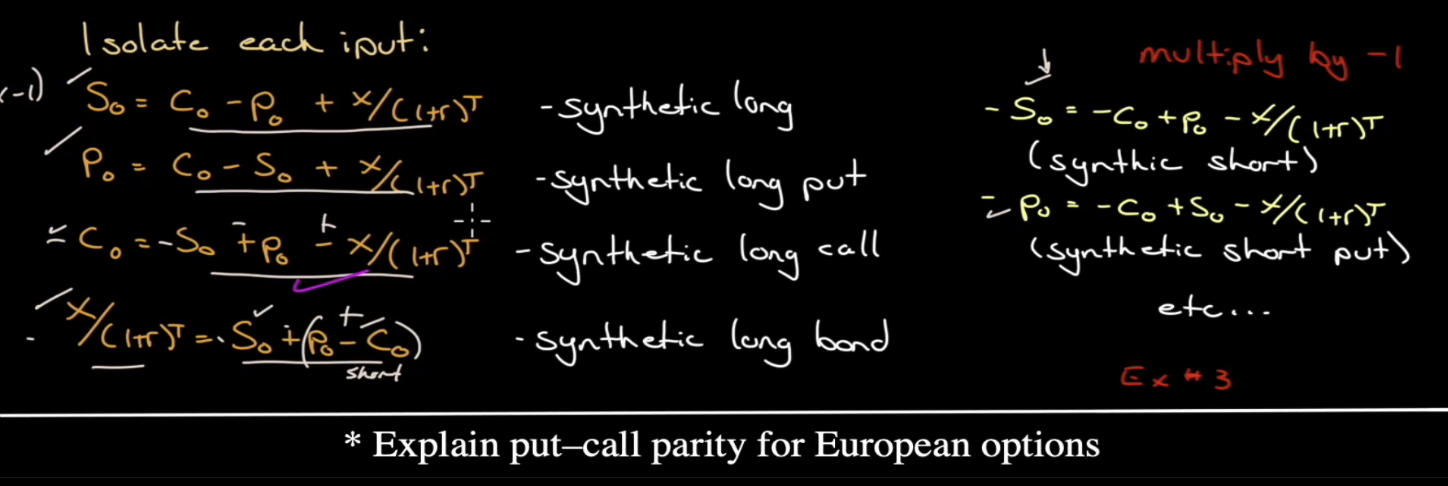 Isolate each iput:
(-1) S₀ = C₀ - P₀ + X/(1+r)ᵀ - synthetic long
P₀ = C₀ - S₀ + X/(1+r)ᵀ - synthetic long put
- C₀ = -S₀ + P₀ - X/(1+r)ᵀ - synthetic long call
- +
- X/(1+r)ᵀ = - S₀ + (P₀ - C₀) - synthetic long bond
+
short
multiply by -1
- S₀ = -C₀ + P₀ - X/(1+r)ᵀ
(synthic short)
- P₀ = -C₀ + S₀ - X/(1+r)ᵀ
(synthetic short put)
etc...
Ex #3
* Explain put–call parity for European options